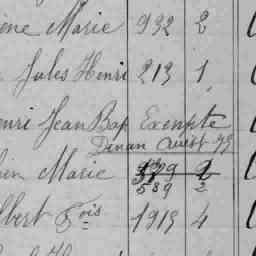 ène Marie 932 2
Jules Henri 213 1
enri Jean Bap Exempte
Dinan Ouest 79
in Marie 589 2
lbert Fois 1915 4